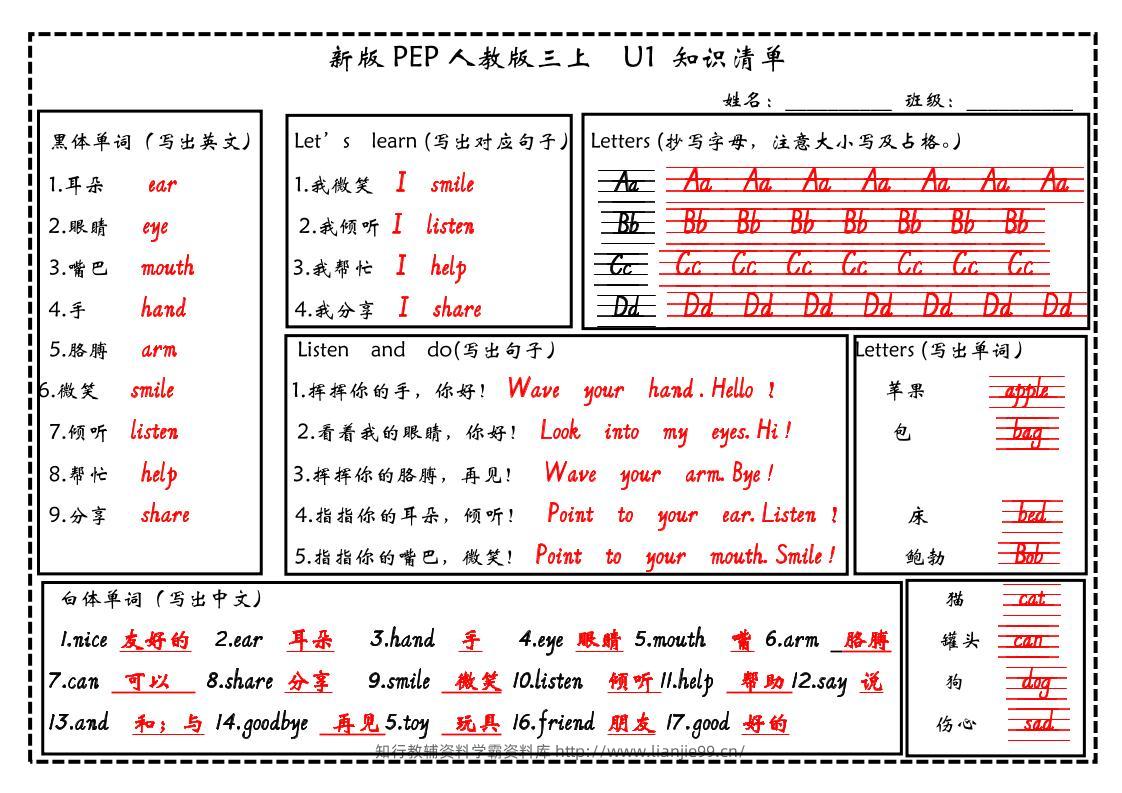 新版 PEP 人教版三上 U1 知识清单
姓名：__________ 班级：__________
黑体单词（写出英文）
1.耳朵 ear
2.眼睛 eye
3.嘴巴 mouth
4.手 hand
5.胳膊 arm
6.微笑 smile
7.倾听 listen
8.帮忙 help
9.分享 share
Let's learn (写出对应句子)
1.我微笑 I smile
2.我倾听 I listen
3.我帮忙 I help
4.我分享 I share
Letters (抄写字母，注意大小写及占格。)
Aa Aa Aa Aa Aa Aa Aa Aa
Bb Bb Bb Bb Bb Bb Bb Bb
Cc Cc Cc Cc Cc Cc Cc Cc
Dd Dd Dd Dd Dd Dd Dd Dd
Listen and do(写出句子)
1.挥挥你的手，你好！ Wave your hand. Hello !
2.看着我的眼睛，你好！ Look into my eyes. Hi !
3.挥挥你的胳膊，再见！ Wave your arm. Bye !
4.指指你的耳朵，倾听！ Point to your ear. Listen !
5.指指你的嘴巴，微笑！ Point to your mouth. Smile !
Letters (写出单词)
苹果 apple
包 bag
床 bed
鲍勃 Bob
猫 cat
罐头 can
狗 dog
伤心 sad
白体单词（写出中文）
1.nice 友好的 2.ear 耳朵 3.hand 手 4.eye 眼睛 5.mouth 嘴 6.arm _胳膊
7.can 可以 8.share 分享 9.smile 微笑 10.listen 倾听 11.help 帮助 12.say 说
13.and 和；与 14.goodbye 再见 5.toy 玩具 16.friend 朋友 17.good 好的
知行教辅资料学霸资料库 http://www.lianjie99.cn/